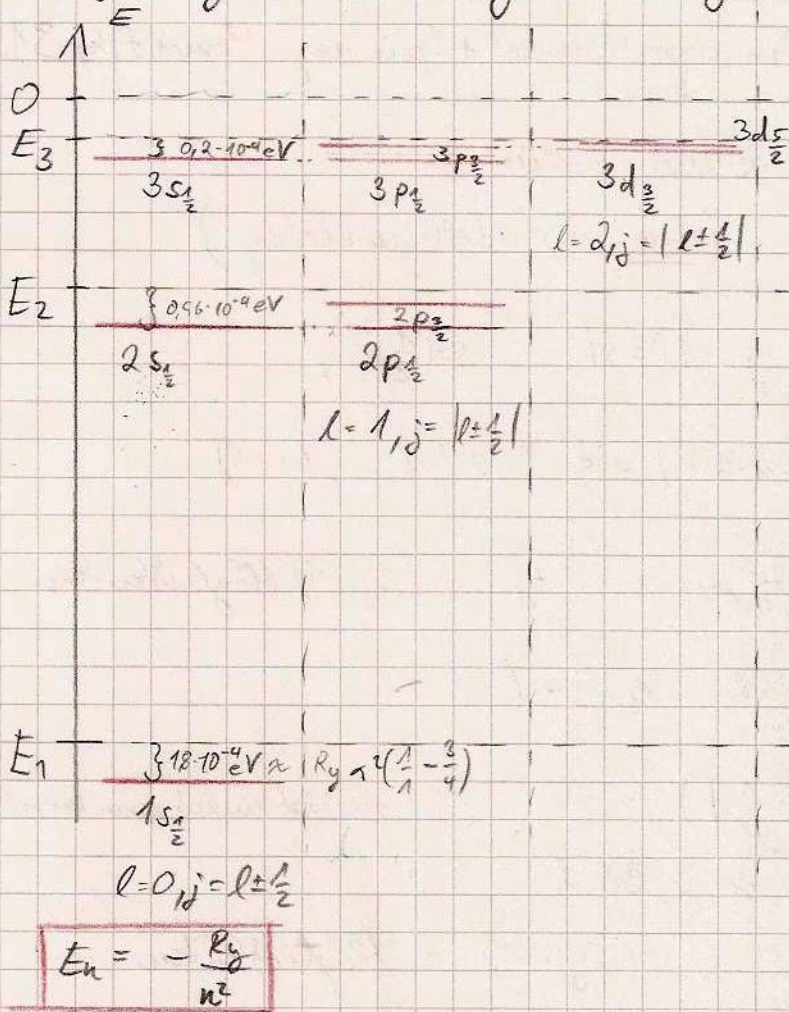 E
0
E₃ } 0,2·10⁻⁴eV 3p_{3/2} 3d_{5/2}
3s_{1/2} 3p_{1/2} 3d_{3/2}
l = 2, j = | l ± 1/2 |
E₂ } 0,56·10⁻⁴eV 2p_{3/2}
2s_{1/2} 2p_{1/2}
l = 1, j = | l ± 1/2 |
E₁ } 18·10⁻⁴eV ≈ Ry α²(1/1 − 3/4)
1s_{1/2}
l = 0, j = l ± 1/2
Eₙ = − Ry/n²